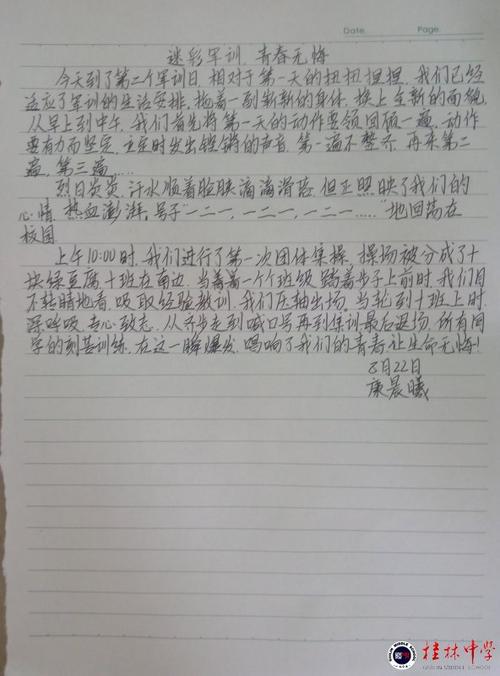 Date. Page.
迷彩军训,青春无悔
今天到了第二个军训日,相对于第一天的扭扭捏捏,我们已经
适应了军训的生活安排,拖着一副崭新的身体,换上全新的面貌.
从早上到中午,我们首先将第一天的动作要领回顾一遍,动作
要有力而坚定,立定时发出铿锵的声音,第一遍不整齐,再来第二
遍,第三遍......
烈日炎炎,汗水顺着脸颊滴滴滑落,但正照映了我们的
心情,热血澎湃,号子“一二一,一二一,一二一......”地回荡在
校园.
上午10:00时,我们进行了第一次团体集操,操场被分成了十
块绿豆腐,十班在南边,当看着一个个班级踏着步子上前时,我们目
不转睛地看,吸取经验教训,我们压轴出场,当轮到十班上时,
深呼吸,专心致志,从齐步走到喊口号再到集训最后退场,所有同
学的刻苦训练,在这一瞬爆发,唱响了我们的青春,让生命无悔!
8月22日
康晨曦
桂林中学
GUILIN MIDDLE SCHOOL